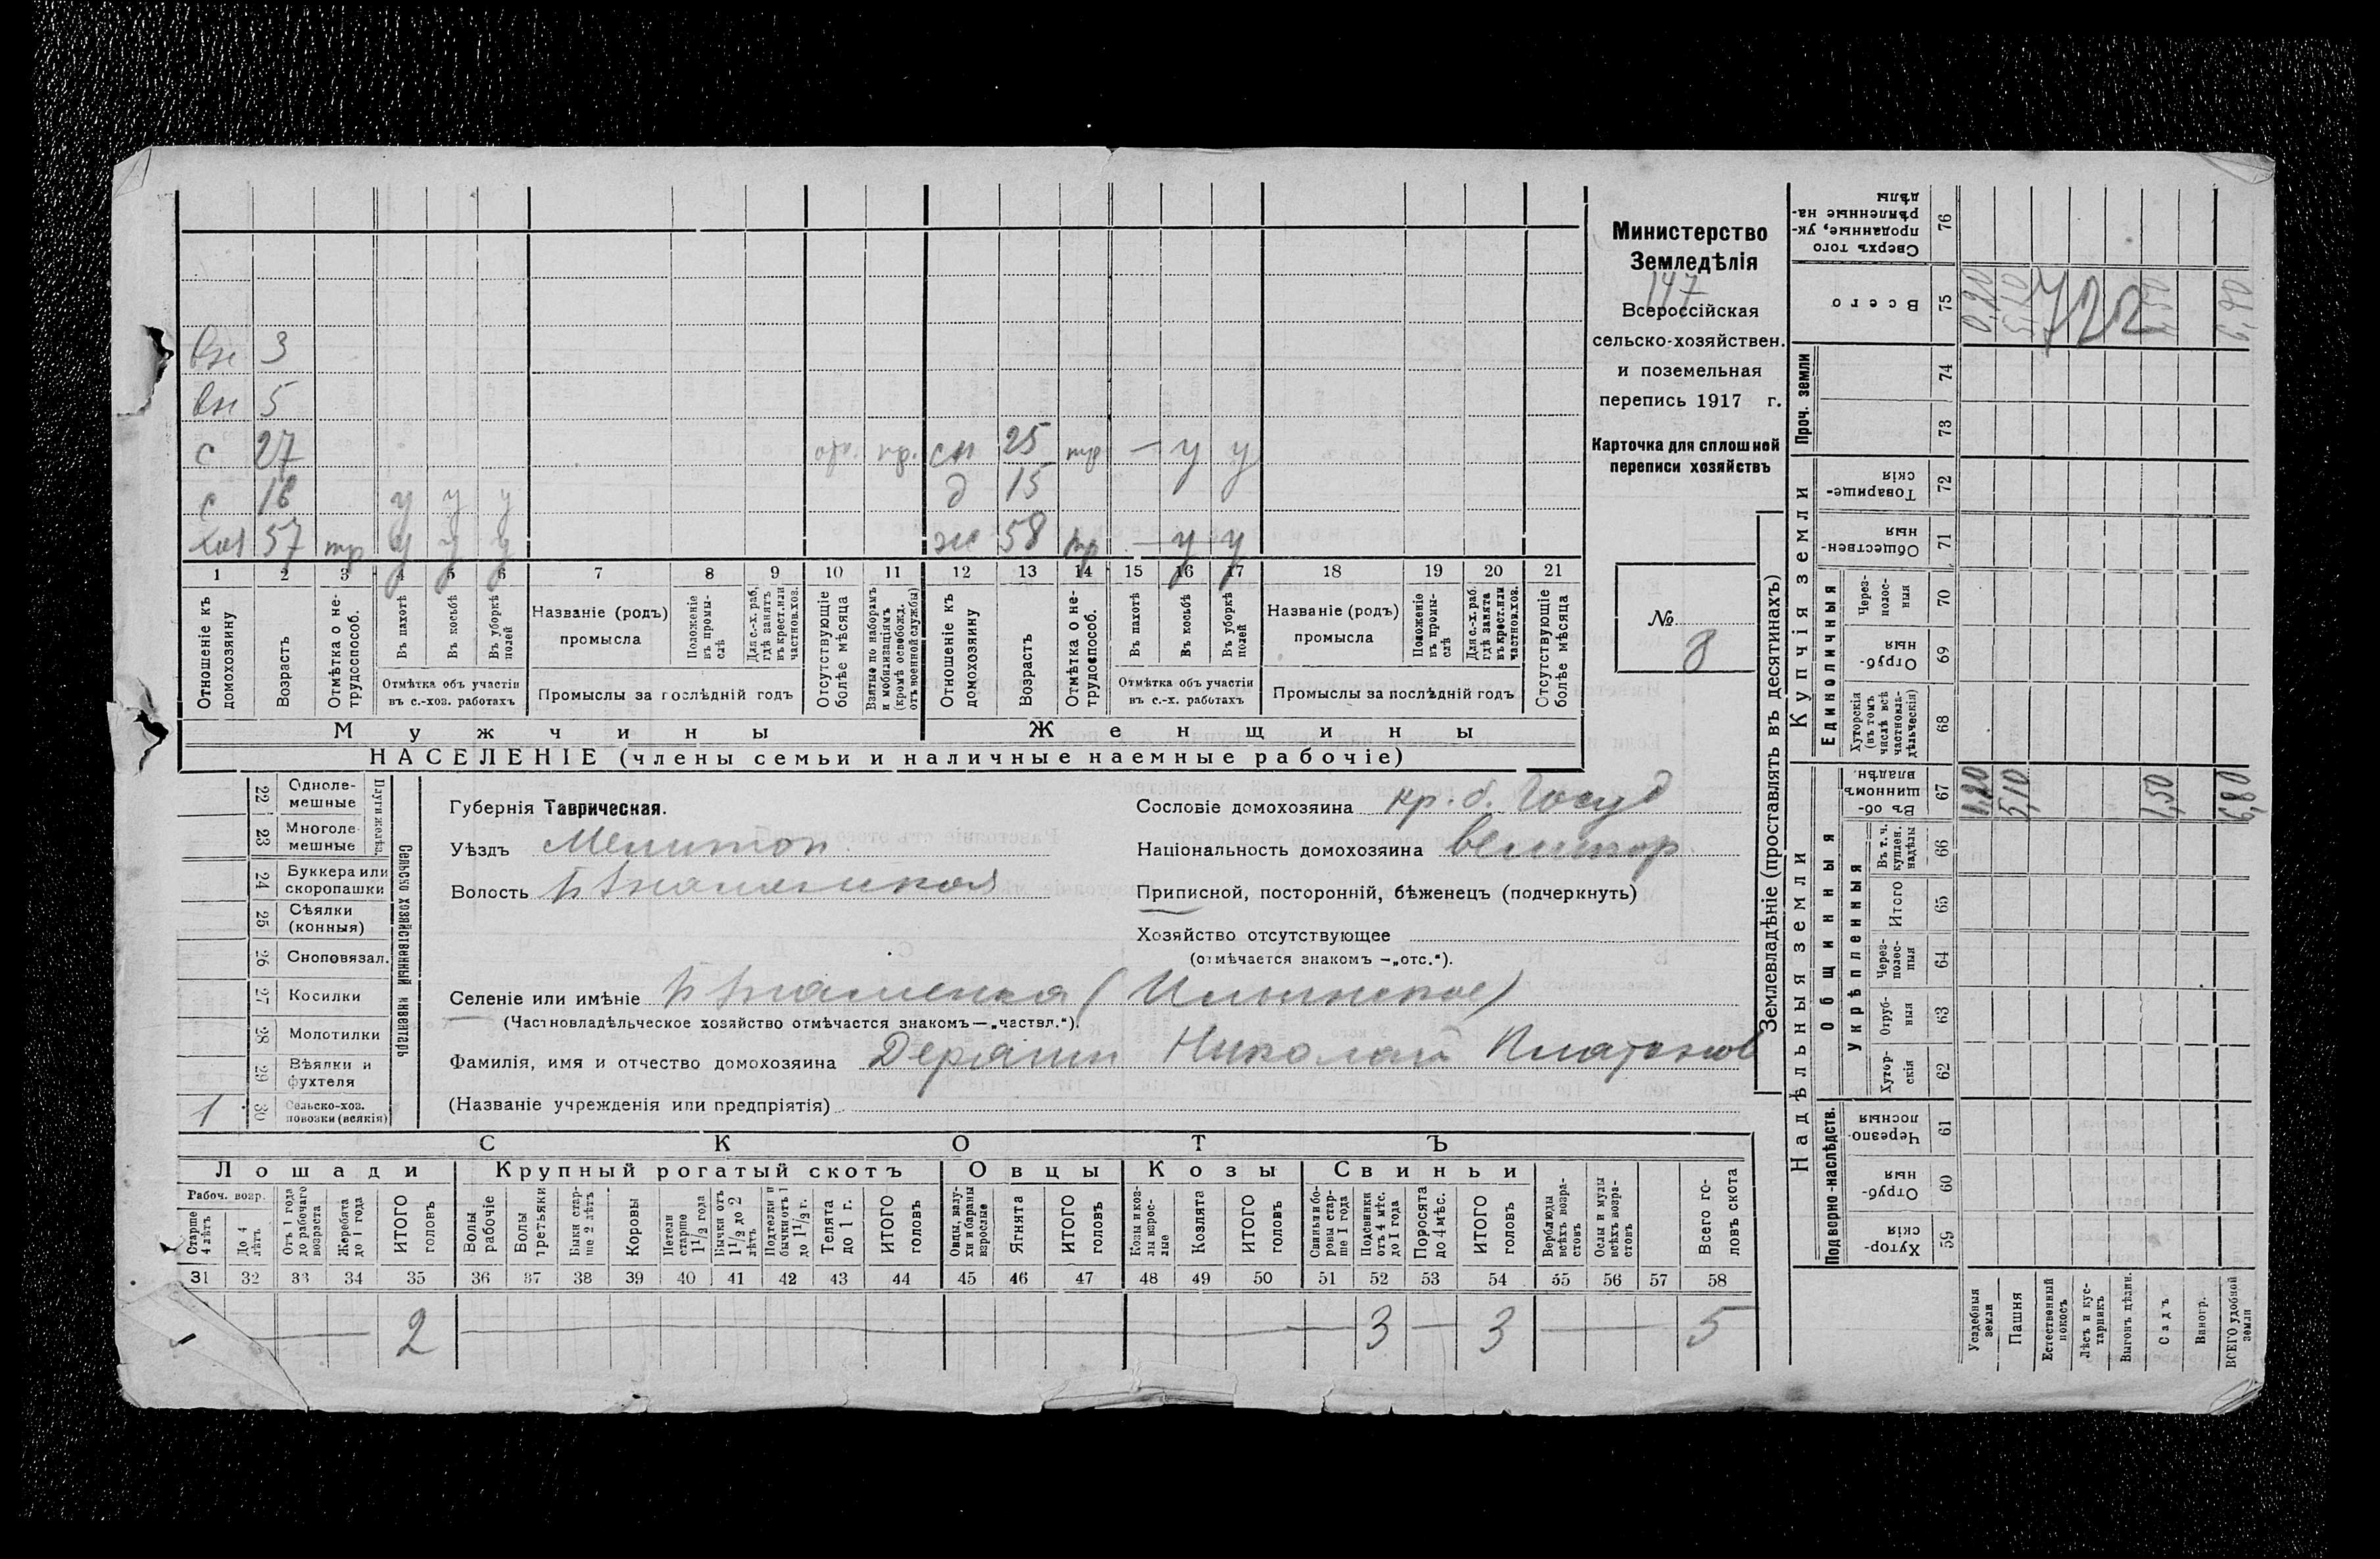 вн 3
вн 5
с 27 пр. сн 25 тр — у у
с 16 у у у д 15
хоз 57 тр у у у ж 58 тр — у у
1 2 3 4 5 6 7 8 9 10 11 12 13 14 15 16 17 18 19 20 21
Отношеніе къ домохозяину
Возрастъ
Отмѣтка о не-трудоспособ.
Въ пахотѣ
Въ косьбѣ
Въ уборкѣ полей
Отмѣтка объ участіи въ с.-хоз. работахъ
Названіе (родъ) промысла
Положеніе въ промы-слѣ
Для с.-х. раб. гдѣ занятъ въ крест. или частновл. хоз.
Промыслы за послѣдній годъ
Отсутствующіе болѣе мѣсяца
Взятые по наборамъ и мобилизаціямъ (кромѣ освобожд. отъ военной службы)
Отношеніе къ домохозяину
Возрастъ
Отмѣтка о не-трудоспособ.
Въ пахотѣ
Въ косьбѣ
Въ уборкѣ полей
Отмѣтка объ участіи въ с.-х. работахъ
Названіе (родъ) промысла
Положеніе въ промы-слѣ
Для с.-х. раб. гдѣ занята въ крест. или частновл. хоз.
Промыслы за послѣдній годъ
Отсутствующіе болѣе мѣсяца
Мужчины Женщины
НАСЕЛЕНІЕ (члены семьи и наличные наемные рабочіе)
Министерство
Земледѣлія
147
Всероссійская
сельско-хозяйствен.
и поземельная
перепись 1917 г.
Карточка для сплошной
переписи хозяйствъ
№ 8
22 Одноле-мешные
23 Многоле-мешные
Плуги желѣз.
24 Буккера или скоропашки
25 Сѣялки (конныя)
26 Сноповязал.
27 Косилки
28 Молотилки
29 Вѣялки и фухтеля
1 30 Сельско-хоз. повозки (всякія)
Сельско хозяйственный инвентарь
Губернія Таврическая.
Уѣздъ Мелитоп
Волость
Сословіе домохозяина кр. б. Госуд
Національность домохозяина великор.
Приписной, посторонній, бѣженецъ (подчеркнуть)
Хозяйство отсутствующее
(отмѣчается знакомъ —„отс.“).
Селеніе или имѣніе Б Знаменка (Ильинское)
(Частновладѣльческое хозяйство отмѣчается знакомъ—„частвл.“).
Фамилія, имя и отчество домохозяина Николай Платонов
(Названіе учрежденія или предпріятія)
СКОТЪ
Лошади Крупный рогатый скотъ Овцы Козы Свиньи
Рабоч. возр.
Старше 4 лѣтъ
До 4 лѣтъ
Отъ 1 года до рабочаго возраста
Жеребята до 1 года
ИТОГО головъ
Волы рабочіе
Волы третьяки
Быки стар-ше 2 лѣтъ
Коровы
Нетели старше 1½ года
Бычки отъ 1½ до 2 лѣтъ
Подтелки и бычки отъ 1 до 1½ г.
Телята до 1 г.
ИТОГО головъ
Овцы, валу-хи и бараны взрослые
Ягнята
ИТОГО головъ
Козы и коз-лы взрос-лые
Козлята
ИТОГО головъ
Свиньи и бо-ровы стар-ше 1 года
Подсвинки отъ 4 мѣс. до 1 года
Поросята до 4 мѣс.
ИТОГО головъ
Верблюды всѣхъ возра-стовъ
Ослы и мулы всѣхъ возра-стовъ
Всего го-ловъ скота
31 32 33 34 35 36 37 38 39 40 41 42 43 44 45 46 47 48 49 50 51 52 53 54 55 56 57 58
— 2 — 3 — 3 — 5
Землевладѣніе (проставлять въ десятинахъ)
Сверхъ того проданные, ук-рѣпленные на-дѣлы 76
Всего 75 0,20 5,10 722 1,50 6,90
Проч. земли 74 73
Купчія земли
Товарище-скія 72
Обществен-ныя 71
Единоличныя
Через-полос-ныя 70
Отруб-ныя 69
Хуторскія (въ томъ числѣ всѣ частновла-дѣльческія) 68
Надѣльныя земли
Общинныя
Въ об-щинномъ владѣн. 67 5,10 1,50 6,80
Укрѣпленныя
Въ т. ч. куплен. надѣлы 66
Итого 65
Через-полос-ныя 64
Отруб-ныя 63
Хутор-скія 62
Подворно-наслѣдств.
Черезпо-лосныя 61
Отруб-ныя 60
Хутор-скія 59
Усадебныя земли
Пашня
Естественный покосъ
Лѣсъ и кус-тарникъ
Выгонъ цѣлин.
Садъ
Виногр.
ВСЕГО удобной земли